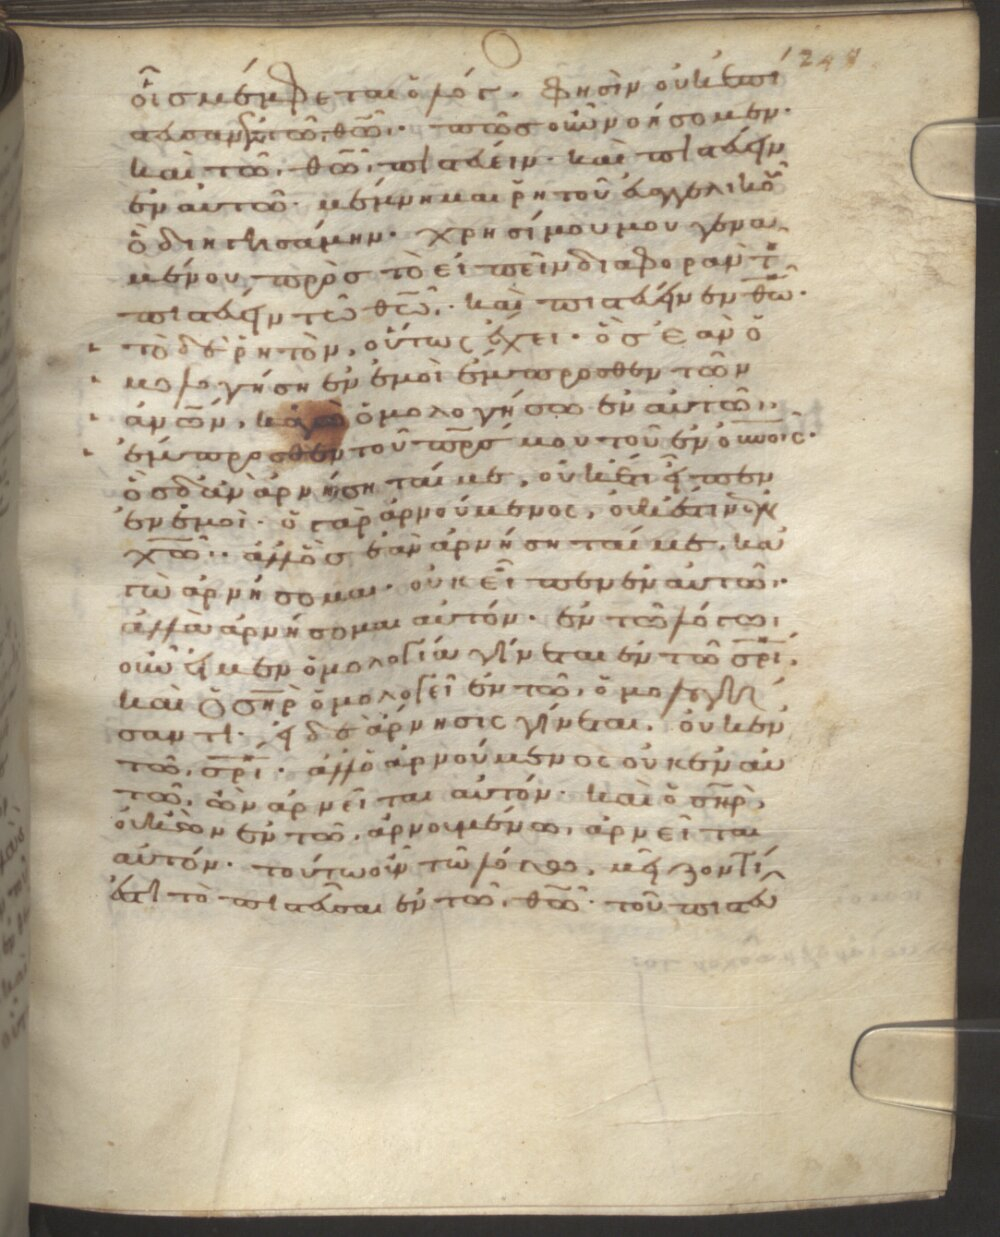 248
οἷς μέμφεται ὁ λόγος. φησὶν οὐκ ἐπι
στεύσαν τῶ θῶ. πῶς οὖν νοήσομεν
καὶ τῶ θῶ πιστεύειν. καὶ πιστεύειν
ἐν αὐτῶ. μέμνημαι ῥητοῦ εὐαγγελικοῦ
ὃ διηγησάμην. χρησίμου μου γενο
μένου πρὸς τὸ εἰπεῖν διαφορὰν τοῦ
πιστεύειν τῶ θῶ. καὶ πιστεύειν ἐν θῶ.
τὸ δὲ ῥητὸν, οὕτως ἔχει. ὃς ἐὰν ὁ
μολογήση ἐν ἐμοὶ ἔμπροσθεν τῶν
ἀνῶν, κἀγὼ ὁμολογήσω ἐν αὐτῶ
ἔμπροσθεν τοῦ πρς μου τοῦ ἐν οὐνοῖς.
ὃς δ' ἂν ἀρνήσηταί με, οὐκέτι εἶπεν
ἐν ἐμοί. ὁ γὰρ ἀρνούμενος, οὐκ ἔστιν ἐν
χῶ. ἀλλ' ὃς ἐὰν ἀρνήσηταί με, κἀ
γὼ ἀρνήσομαι. οὐκ εἶπεν ἐν αὐτῶ.
ἀλλὰ ἀρνήσομαι αὐτόν. ἐν τῶ λόγω
οὖν ἡ μὲν ὁμολογία γίνεται ἐν τῶ σρι,
καὶ ὁ σηρ ὁμολογεῖ ἐν τῶ ὁμολογή
σαντι. ἡ δὲ ἄρνησις γίνεται, οὐκ ἐν
τῶ σρι. ἀλλ' ὁ ἀρνούμενος οὐκ ἐν αὐ
τῶ ὢν ἀρνεῖται αὐτόν. καὶ ὁ σηρ,
οὐκ ὢν ἐν τῶ ἀρνουμένω, ἀρνεῖται
αὐτόν. τούτω οὖν τῶ λόγω, μεῖζόν τί
ἐστι τὸ πιστεῦσαι ἐν τῶ θῶ. τοῦ πιστεῦ